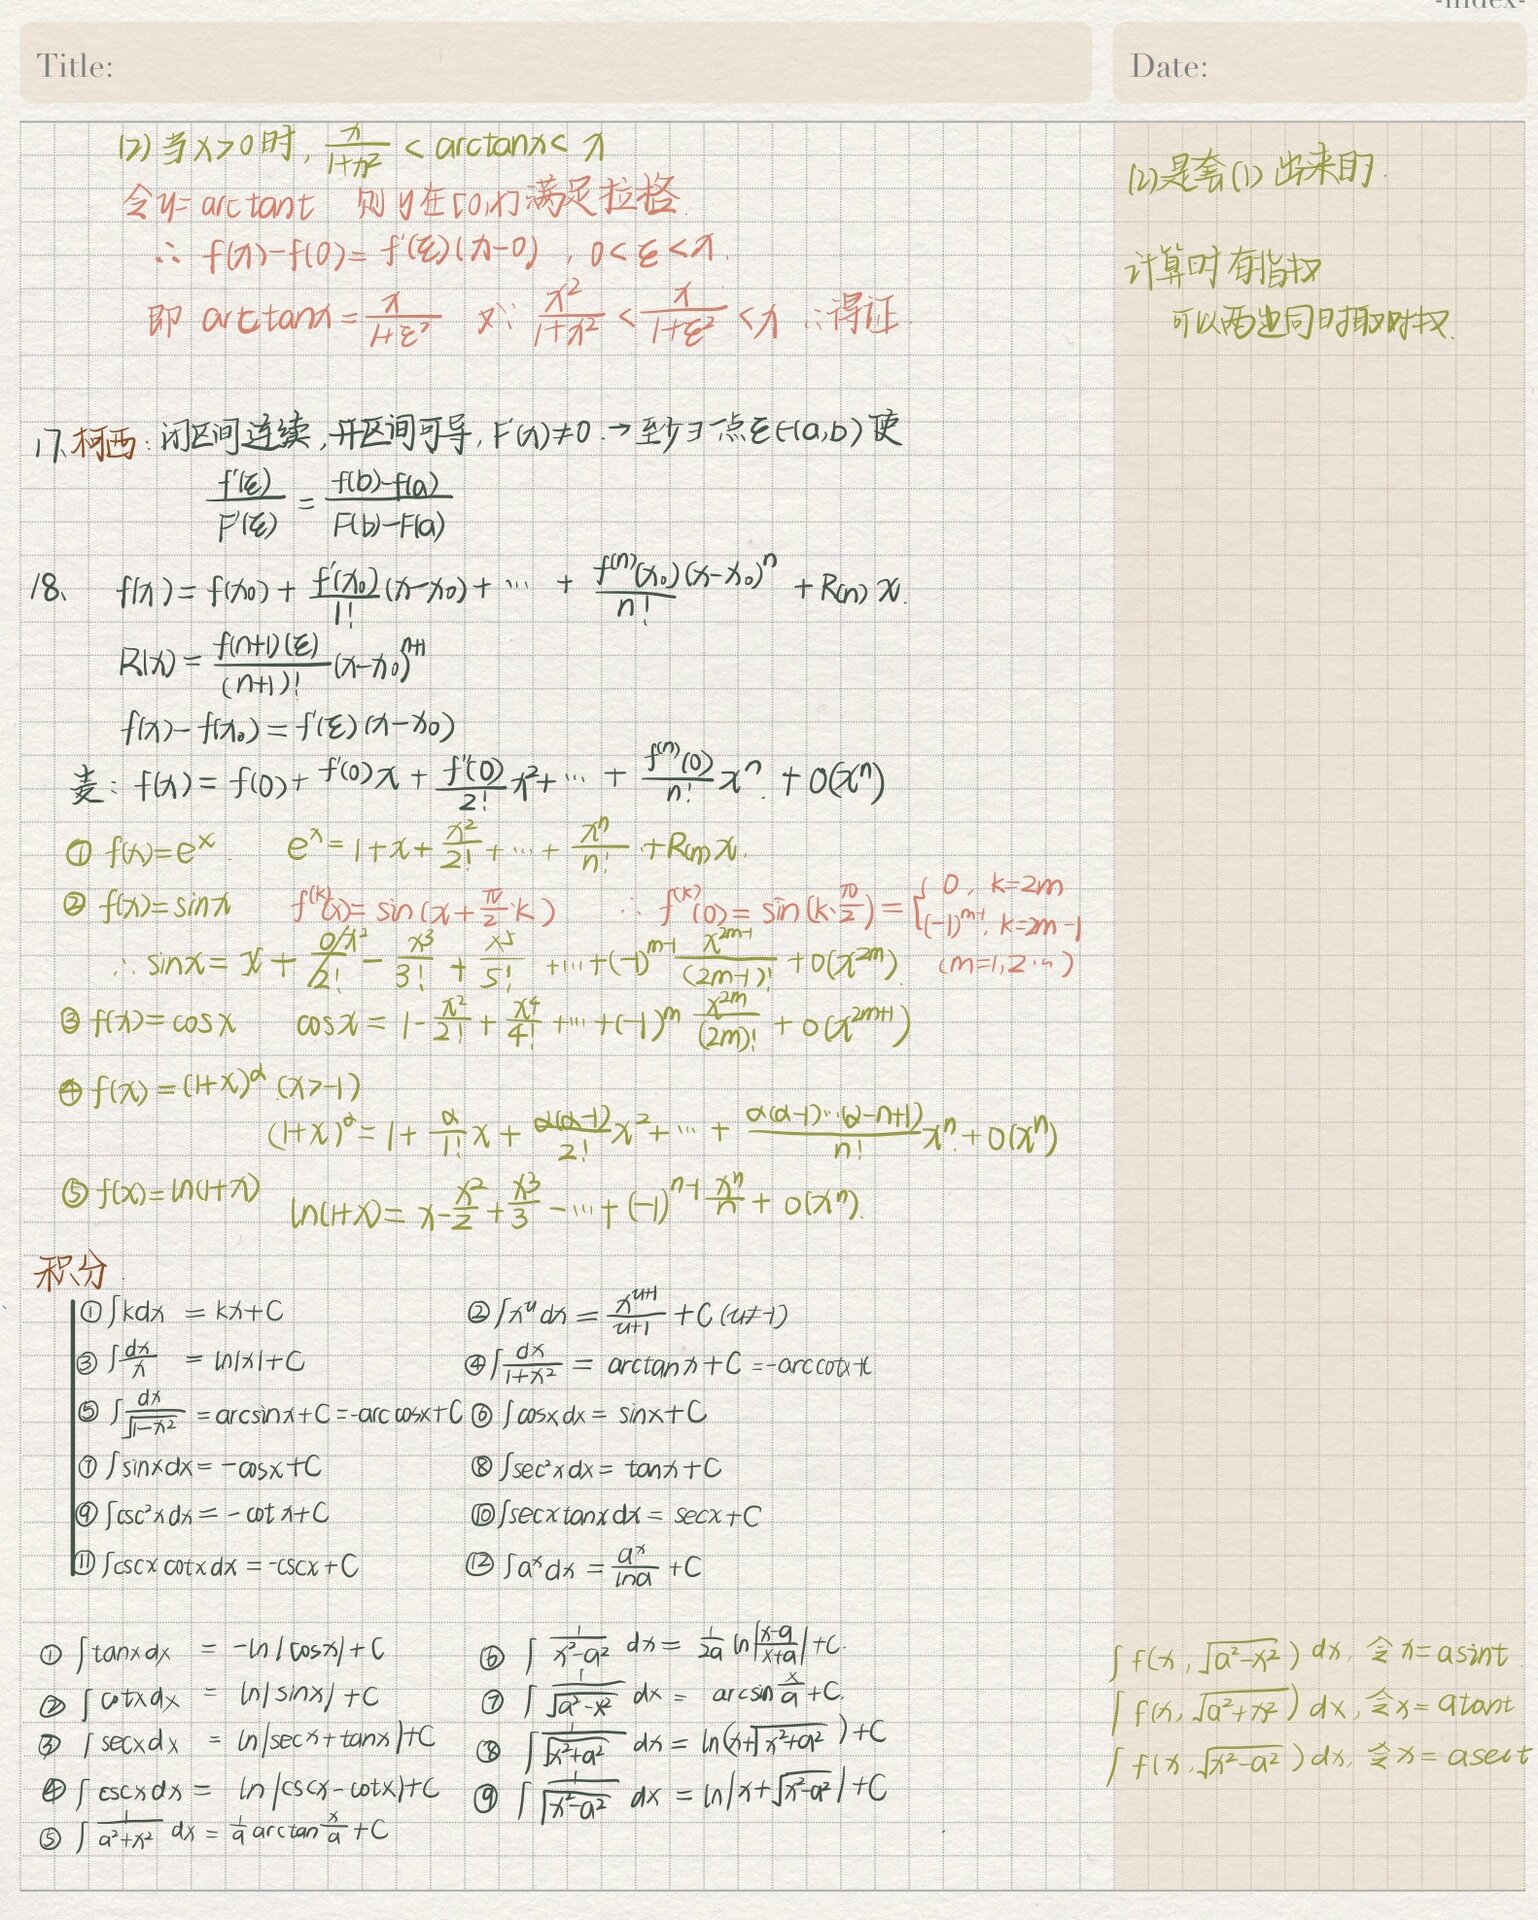 -index-
Title:
Date:
(2) 当x>0时, x/(1+x²) < arctanx < x
令y=arctant 则y在[0,x]满足拉格
∴ f(x)-f(0)=f'(ξ)(x-0), 0<ξ<x.
即 arctanx=x/(1+ξ²) 又∵ x²/(1+x²) < x/(1+ξ²) <x ∴得证
17、柯西:闭区间连续,开区间可导, F'(x)≠0.→至少∃一点ξ∈(a,b)使
f'(ξ)/F'(ξ) = (f(b)-f(a))/(F(b)-F(a))
18、 f(x)=f(x₀)+f'(x₀)/1!(x-x₀)+…+f⁽ⁿ⁾(x₀)(x-x₀)ⁿ/n!+R(n)x.
R(x)=f(n+1)(ξ)/(n+1)!(x-x₀)ⁿ⁺¹
f(x)-f(x₀)=f'(ξ)(x-x₀)
麦:f(x)=f(0)+f'(0)x+f''(0)/2! x²+…+f⁽ⁿ⁾(0)/n! xⁿ+o(xⁿ)
① f(x)=eˣ. eˣ=1+x+x²/2!+…+xⁿ/n!+R(n)x.
② f(x)=sinx f⁽ᵏ⁾(x)=sin(x+π/2·k) ∴ f⁽ᵏ⁾(0)=sin(k·π/2)={0, k=2m
(-1)ᵐ⁻¹, k=2m-1
∴ sinx=x+0·x²/2!-x³/3!+x⁵/5!+…+(-1)ᵐ⁻¹ x²ᵐ⁻¹/(2m-1)!+o(x²ᵐ) (m=1,2…)
③ f(x)=cosx cosx=1-x²/2!+x⁴/4!+…+(-1)ᵐ x²ᵐ/(2m)!+o(x²ᵐ⁺¹)
④ f(x)=(1+x)^α (x>-1)
(1+x)^α=1+α/1! x+α(α-1)/2! x²+…+α(α-1)…(α-n+1)/n! xⁿ+o(xⁿ)
⑤ f(x)=ln(1+x) ln(1+x)=x-x²/2+x³/3-…+(-1)ⁿ⁻¹ xⁿ/n+o(xⁿ).
积分
① ∫kdx = kx+C ② ∫xᵘdx=xᵘ⁺¹/(u+1)+C (u≠-1)
③ ∫dx/x = ln|x|+C ④ ∫dx/(1+x²) = arctanx+C=-arccotx+c
⑤ ∫dx/√(1-x²) =arcsinx+C=-arccosx+C ⑥ ∫cosxdx= sinx+C
⑦ ∫sinxdx=-cosx+C ⑧ ∫sec²xdx= tanx+C
⑨ ∫csc²xdx=-cotx+C ⑩ ∫secxtanxdx= secx+C
⑪ ∫cscxcotxdx=-cscx+C ⑫ ∫aˣdx=aˣ/lna+C
① ∫tanxdx = -ln|cosx|+C ⑥ ∫1/(x²-a²) dx= 1/2a ln|(x-a)/(x+a)|+C.
② ∫cotxdx = ln|sinx|+C ⑦ ∫1/√(a²-x²) dx= arcsin x/a+C.
③ ∫secxdx = ln|secx+tanx|+C ⑧ ∫1/√(x²+a²) dx=ln(x+√(x²+a²))+C
④ ∫cscxdx= ln|cscx-cotx|+C ⑨ ∫1/√(x²-a²) dx=ln|x+√(x²-a²)|+C
⑤ ∫1/(a²+x²) dx=1/a arctan x/a+C
(2)是套(1)出来的.
计算时有指权
可以两边同时取对权.
∫f(x,√(a²-x²))dx, 令x=asint
∫f(x,√(a²+x²))dx, 令x=atant
∫f(x,√(x²-a²))dx, 令x=asect